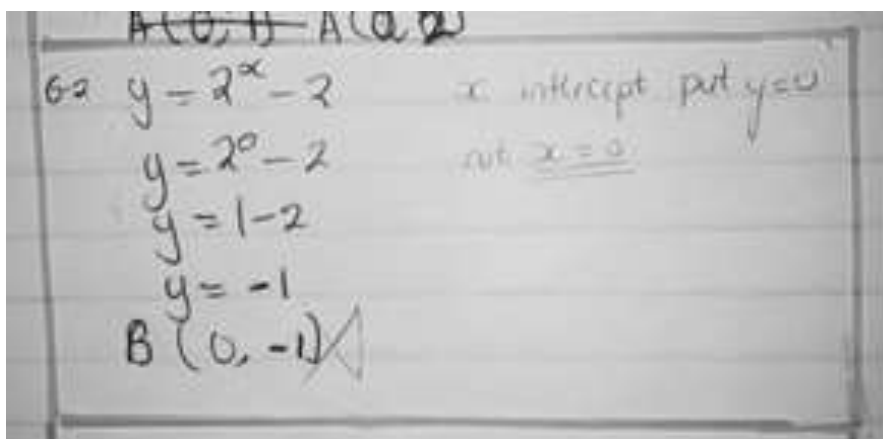 A(0, 1) A(0, 2)
6.2 y = 2^x - 2 x intercept put y=0
y = 2^0 - 2 not x = 0
y = 1 - 2
y = -1
B (0, -1)